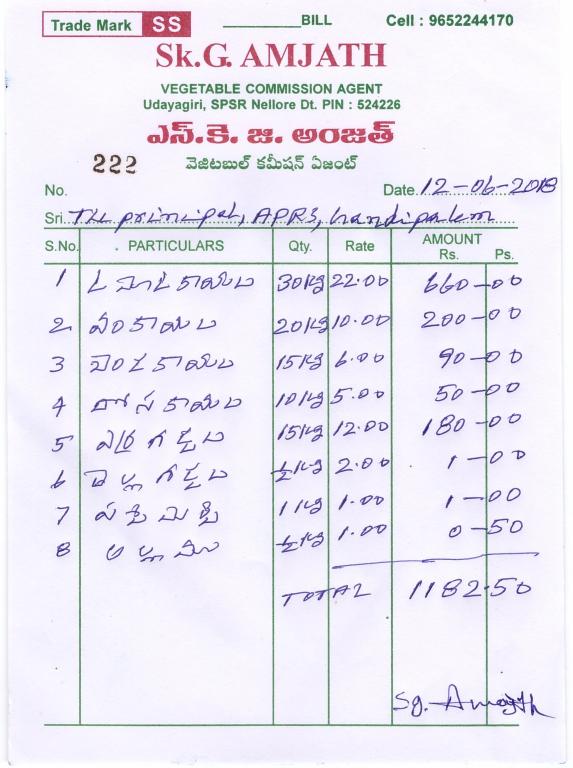 Trade Mark SS
__________BILL
Cell : 9652244170
Sk.G. AMJATH
VEGETABLE COMMISSION AGENT
Udayagiri, SPSR Nellore Dt. PIN : 524226
ఎస్.కె. జి. అంజత్
వెజిటబుల్ కమీషన్ ఏజంట్
222
No. Date. 12-06-2018
Sri. The principal, APRS,
S.No. PARTICULARS Qty. Rate AMOUNT Rs. Ps.
1 టమాటకాయలు 30kg 22.00 660-00
2 వంకాయలు 20kg 10.00 200-00
3 బెండకాయలు 15kg 6.00 90-00
4 దోసకాయలు 10kg 5.00 50-00
5 ఎర్రగడ్డలు 15kg 12.00 180-00
6 తెల్లగడ్డలు ½kg 2.00 1-00
7 పచ్చిమిర్చి 1kg 1.00 1-00
8 అల్లము ½kg 1.00 0-50
TOTAL 1182.50
Sg. Amajth